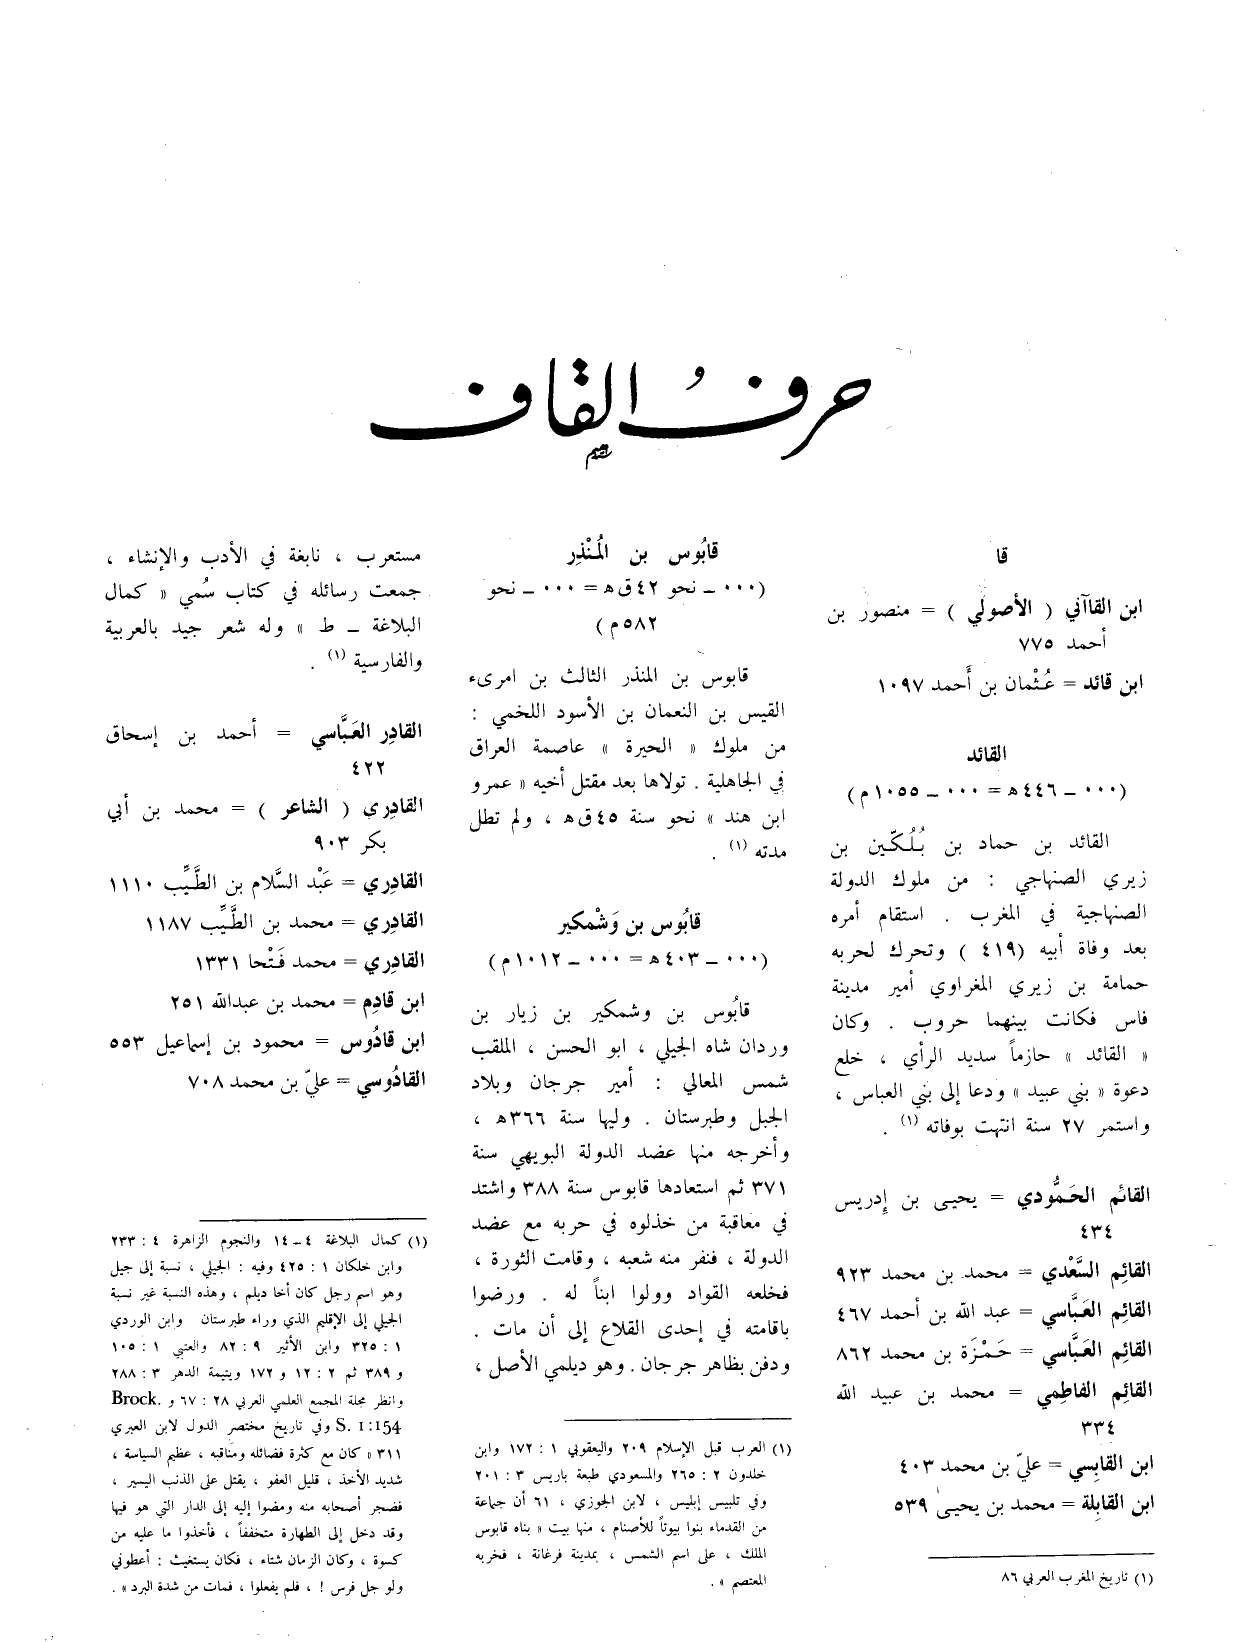 حرف القاف
قا
ابن القاآني ( الأصولي ) = منصور بن
أحمد ٧٧٥
ابن قائد = عُثْمان بن أَحمد ١٠٩٧
القائد
(٠٠٠ ــ ٤٤٦ هـ = ٠٠٠ ــ ١٠٥٥ م)
القائد بن حماد بن بُلُكّين بن
زيري الصنهاجي : من ملوك الدولة
الصنهاجية في المغرب . استقام أمره
بعد وفاة أبيه (٤١٩ ) وتحرك لحربه
حمامة بن زيري المغراوي أمير مدينة
فاس فكانت بينهما حروب . وكان
« القائد » حازماً سديد الرأي ، خلع
دعوة « بني عبيد » ودعا إلى بني العباس ،
واستمر ٢٧ سنة انتهت بوفاته (١) .
القائم الحَمُّودي = يحيى بن إدريس
٤٣٤
القائِم السَّعْدي = محمد بن محمد ٩٢٣
القائِم العَبَّاسي = عبد الله بن أحمد ٤٦٧
القائِم العَبَّاسي = حَمْزَة بن محمد ٨٦٢
القائِم الفاطِمي = محمد بن عبيد الله
٣٣٤
ابن القابِسي = عليّ بن محمد ٤٠٣
ابن القابِلة = محمد بن يحيىٰ ٥٣٩
(١) تاريخ المغرب العربي ٨٦
قابُوس بن المُنْذِر
(٠٠٠ ــ نحو ٤٢ ق هـ = ٠٠٠ ــ نحو
٥٨٢ م)
قابوس بن المنذر الثالث بن امرىء
القيس بن النعمان بن الأسود اللخمي :
من ملوك « الحيرة » عاصمة العراق
في الجاهلية . تولاها بعد مقتل أخيه « عمرو
ابن هند » نحو سنة ٤٥ ق هـ ، ولم تطل
مدته (١) .
قابُوس بن وَشْمكير
(٠٠٠ ــ ٤٠٣ هـ = ٠٠٠ ــ ١٠١٢ م)
قابُوس بن وشمكير بن زيار بن
وردان شاه الجيلي ، ابو الحسن ، الملقب
شمس المعالي : أمير جرجان وبلاد
الجبل وطبرستان . وليها سنة ٣٦٦ هـ ،
وأخرجه منها عضد الدولة البويهي سنة
٣٧١ ثم استعادها قابوس سنة ٣٨٨ واشتد
في معاقبة من خذلوه في حربه مع عضد
الدولة ، فنفر منه شعبه ، وقامت الثورة ،
فخلعه القواد وولوا ابناً له . ورضوا
باقامته في إحدى القلاع إلى أن مات .
ودفن بظاهر جرجان . وهو ديلمي الأصل ،
(١) العرب قبل الإسلام ٢٠٩ واليعقوبي ١ : ١٧٢ وابن
خلدون ٢ : ٢٦٥ والمسعودي طبعة باريس ٣ : ٢٠١
وفي تلبيس إبليس ، لابن الجوزي ، ٦١ أن جماعة
من القدماء بنوا بيوتاً للأصنام ، منها بيت « بناه قابوس
الملك ، على اسم الشمس ، بمدينة فرغانة ، فخربه
المعتصم » .
مستعرب ، نابغة في الأدب والإنشاء ،
جمعت رسائله في كتاب سُمي « كمال
البلاغة ــ ط » وله شعر جيد بالعربية
والفارسية (١) .
القادِر العَبَّاسي = أحمد بن إسحاق
٤٢٢
القادِري ( الشاعر ) = محمد بن أبي
بكر ٩٠٣
القادِري = عَبْد السَّلام بن الطَّيِّب ١١١٠
القادِري = محمد بن الطَّيِّب ١١٨٧
القادِري = محمد فَتْحا ١٣٣١
ابن قادِم = محمد بن عبدالله ٢٥١
ابن قادُوس = محمود بن إسماعيل ٥٥٣
القادُوسي = عليّ بن محمد ٧٠٨
(١) كمال البلاغة ٤ــ١٤ والنجوم الزاهرة ٤ : ٢٣٣
وابن خلكان ١ : ٤٢٥ وفيه : الجيلي ، نسبة إلى جيل
وهو اسم رجل كان أخا ديلم ، وهذه النسبة غير نسبة
الجيلي إلى الإقليم الذي وراء طبرستان وابن الوردي
١ : ٣٢٥ وابن الأثير ٩ : ٨٢ والعتبي ١ : ١٠٥
و ٣٨٩ ثم ٢ : ١٢ و ١٧٢ ويتيمة الدهر ٣ : ٢٨٨
وانظر مجلة المجمع العلمي العربي ٢٨ : ٦٧ و Brock.
S. 1:154 وفي تاريخ مختصر الدول لابن العبري
٣١١ « كان مع كثرة فضائله ومناقبه ، عظيم السياسة ،
شديد الأخذ ، قليل العفو ، يقتل على الذنب اليسير ،
فضجر أصحابه منه ومضوا إليه إلى الدار التي هو فيها
وقد دخل إلى الطهارة متخففاً ، فأخذوا ما عليه من
كسوة ، وكان الزمان شتاء ، فكان يستغيث : أعطوني
ولو جل فرس ! ، فلم يفعلوا ، فمات من شدة البرد » .